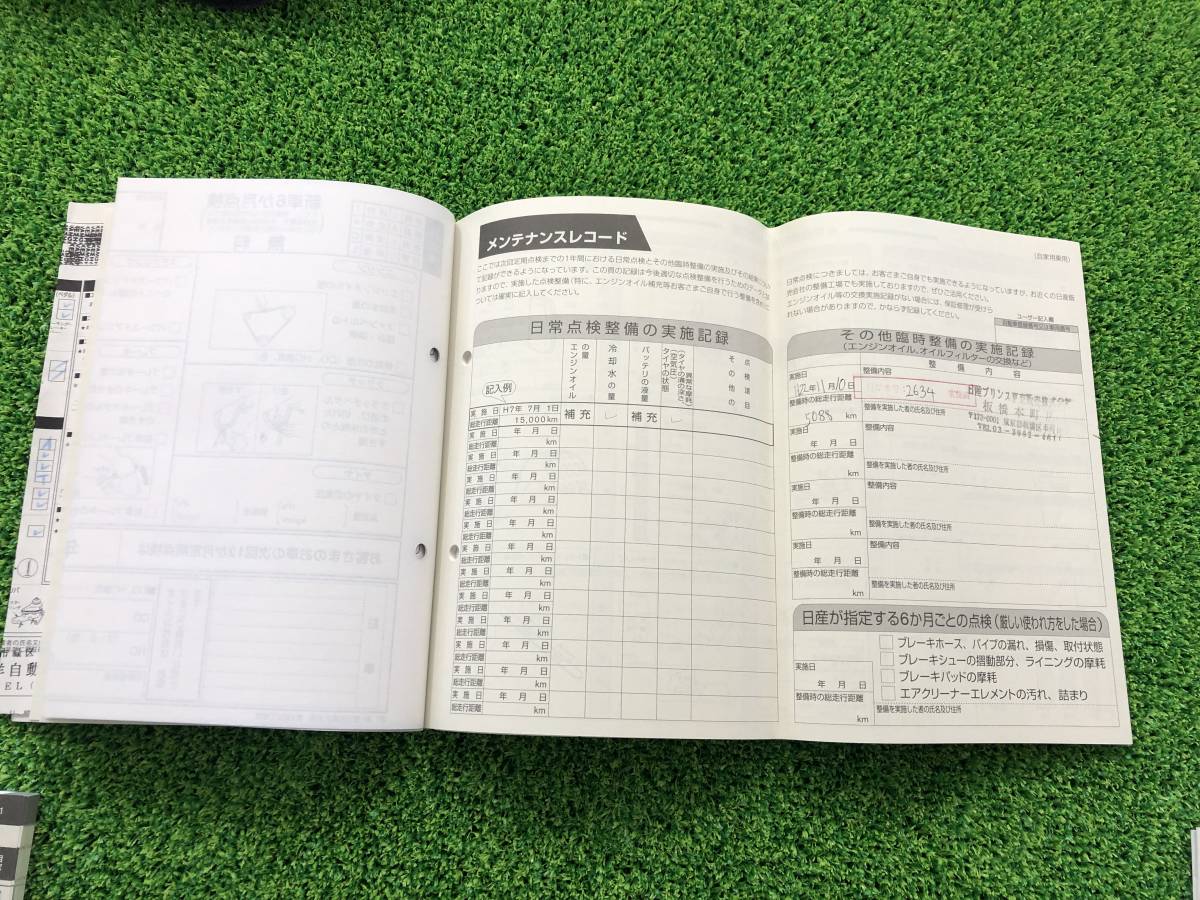 メンテナンスレコード
ここでは次回定期点検までの1年間における日常点検とその他臨時整備の実施及びその結果につい
て記録ができるようになっています。この頁の記録は今後適切な点検整備を行うためのデータとな
りますので、実施した点検整備(特に、エンジンオイル補充等お客さまご自身で行う整備を含め)に
ついては確実に記入してください。
日常点検整備の実施記録
エンジンオイルの量
冷却水の量
バッテリの液量
タイヤの状態(空気圧、タイヤの溝の深さ、異常な摩耗)
その他の点検項目
記入例
実施日 H7年 7月 1日
総走行距離 15,000km
補充
補充
実施日 年 月 日
総走行距離 km
実施日 年 月 日
総走行距離 km
実施日 年 月 日
総走行距離 km
実施日 年 月 日
総走行距離 km
実施日 年 月 日
総走行距離 km
実施日 年 月 日
総走行距離 km
実施日 年 月 日
総走行距離 km
実施日 年 月 日
総走行距離 km
実施日 年 月 日
総走行距離 km
実施日 年 月 日
総走行距離 km
実施日 年 月 日
総走行距離 km
実施日 年 月 日
総走行距離 km
(自家用乗用)
日常点検につきましては、お客さまご自身でも実施できるようになっていますが、お近くの日産販
売会社の整備工場でも実施しておりますので、ぜひご活用ください。
エンジンオイル等の交換実施記録がない場合には、保証修理が受けら
れない場合がありますので、かならず記録してください。
ユーザー記入欄
その他臨時整備の実施記録
(エンジンオイル、オイルフィルターの交換など)
整備内容
実施日
年11月10日
整備内容
2634
日産プリンス
板橋本町
整備時の総走行距離
5088 km
整備を実施した者の氏名及び住所
〒173-0001
実施日
年 月 日
整備内容
整備時の総走行距離
km
整備を実施した者の氏名及び住所
実施日
年 月 日
整備内容
整備時の総走行距離
km
整備を実施した者の氏名及び住所
実施日
年 月 日
整備内容
整備時の総走行距離
km
整備を実施した者の氏名及び住所
日産が指定する6か月ごとの点検(厳しい使われ方をした場合)
ブレーキホース、パイプの漏れ、損傷、取付状態
ブレーキシューの摺動部分、ライニングの摩耗
ブレーキパッドの摩耗
エアクリーナーエレメントの汚れ、詰まり
実施日
年 月 日
整備時の総走行距離
km
整備を実施した者の氏名及び住所